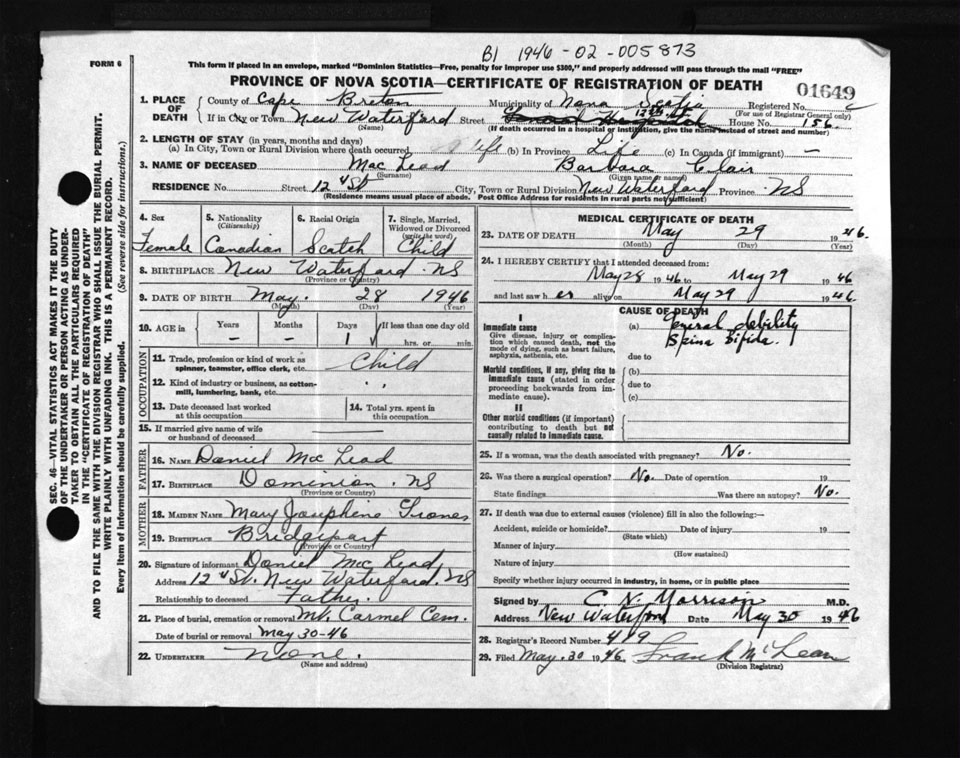 B1 1946-02-005873
FORM 6
This form if placed in an envelope, marked "Dominion Statistics—Free, penalty for improper use $300," and properly addressed will pass through the mail "FREE"
PROVINCE OF NOVA SCOTIA—CERTIFICATE OF REGISTRATION OF DEATH
01649
1. PLACE OF DEATH
County of Cape Breton Municipality of Nova Scotia Registered No.
(For use of Registrar General only)
If in City or Town New Waterford Street 12th St House No. 156.
(Name) (If death occurred in a hospital or institution, give the name instead of street and number)
2. LENGTH OF STAY (in years, months and days)
(a) In City, Town or Rural Division where death occurred Life (b) In Province Life (c) In Canada (if immigrant) —
3. NAME OF DECEASED Mac Lead Barbara Clair
(Surname) (Given name or names)
RESIDENCE No. Street 12 St City, Town or Rural Division New Waterford Province NS
(Residence means usual place of abode. Post Office Address for residents in rural parts not sufficient)
4. Sex Female
5. Nationality (Citizenship) Canadian
6. Racial Origin Scotch
7. Single, Married, Widowed or Divorced (write the word) Child
8. BIRTHPLACE New Waterford NS
(Province or Country)
9. DATE OF BIRTH May 28 1946
(Month) (Day) (Year)
10. AGE in Years Months Days If less than one day old
— — 1 hrs. or min.
OCCUPATION
11. Trade, profession or kind of work as spinner, teamster, office clerk, etc. Child
12. Kind of industry or business, as cotton-mill, lumbering, bank, etc. "
13. Date deceased last worked at this occupation
14. Total yrs. spent in this occupation
15. If married give name of wife or husband of deceased —
FATHER
16. NAME Daniel Mc Lead
17. BIRTHPLACE Dominion NS
(Province or Country)
MOTHER
18. MAIDEN NAME Mary Josephine
19. BIRTHPLACE Bridgeport
(Province or Country)
20. Signature of informant Daniel Mc Lead
Address 12 St. New Waterford. NS
Relationship to deceased Father.
21. Place of burial, cremation or removal Mt. Carmel Cem.
Date of burial or removal May 30-46
22. UNDERTAKER None.
(Name and address)
MEDICAL CERTIFICATE OF DEATH
23. DATE OF DEATH May 29 1946.
(Month) (Day) (Year)
24. I HEREBY CERTIFY that I attended deceased from:
May 28 1946 to May 29 1946
and last saw her alive on May 29 1946.
CAUSE OF DEATH
I
Immediate cause
Give disease, injury or complication which caused death, not the mode of dying, such as heart failure, asphyxia, asthenia, etc.
(a) General debility
Spina Bifida.
due to
Morbid conditions, if any, giving rise to immediate cause (stated in order proceeding backwards from immediate cause).
(b)
due to
(c)
II
Other morbid conditions (if important) contributing to death but not causally related to immediate cause.
25. If a woman, was the death associated with pregnancy? No.
26. Was there a surgical operation? No. Date of operation 19
State findings Was there an autopsy? No.
27. If death was due to external causes (violence) fill in also the following:—
Accident, suicide or homicide? Date of injury 19
(State which)
Manner of injury
(How sustained)
Nature of injury
Specify whether injury occurred in industry, in home, or in public place
Signed by C N. Morrison M.D.
Address New Waterford Date May 30 1946
28. Registrar's Record Number 419
29. Filed May. 30 1946. Frank McLean
(Division Registrar)
SEC. 46—VITAL STATISTICS ACT MAKES IT THE DUTY
OF THE UNDERTAKER OR PERSON ACTING AS UNDER-
TAKER TO OBTAIN ALL THE PARTICULARS REQUIRED
IN THE "CERTIFICATE OF REGISTRATION OF DEATH"
AND TO FILE THE SAME WITH THE DIVISION REGISTRAR WHO SHALL ISSUE THE BURIAL PERMIT.
WRITE PLAINLY WITH UNFADING INK. THIS IS A PERMANENT RECORD.
Every item of information should be carefully supplied. (See reverse side for instructions.)